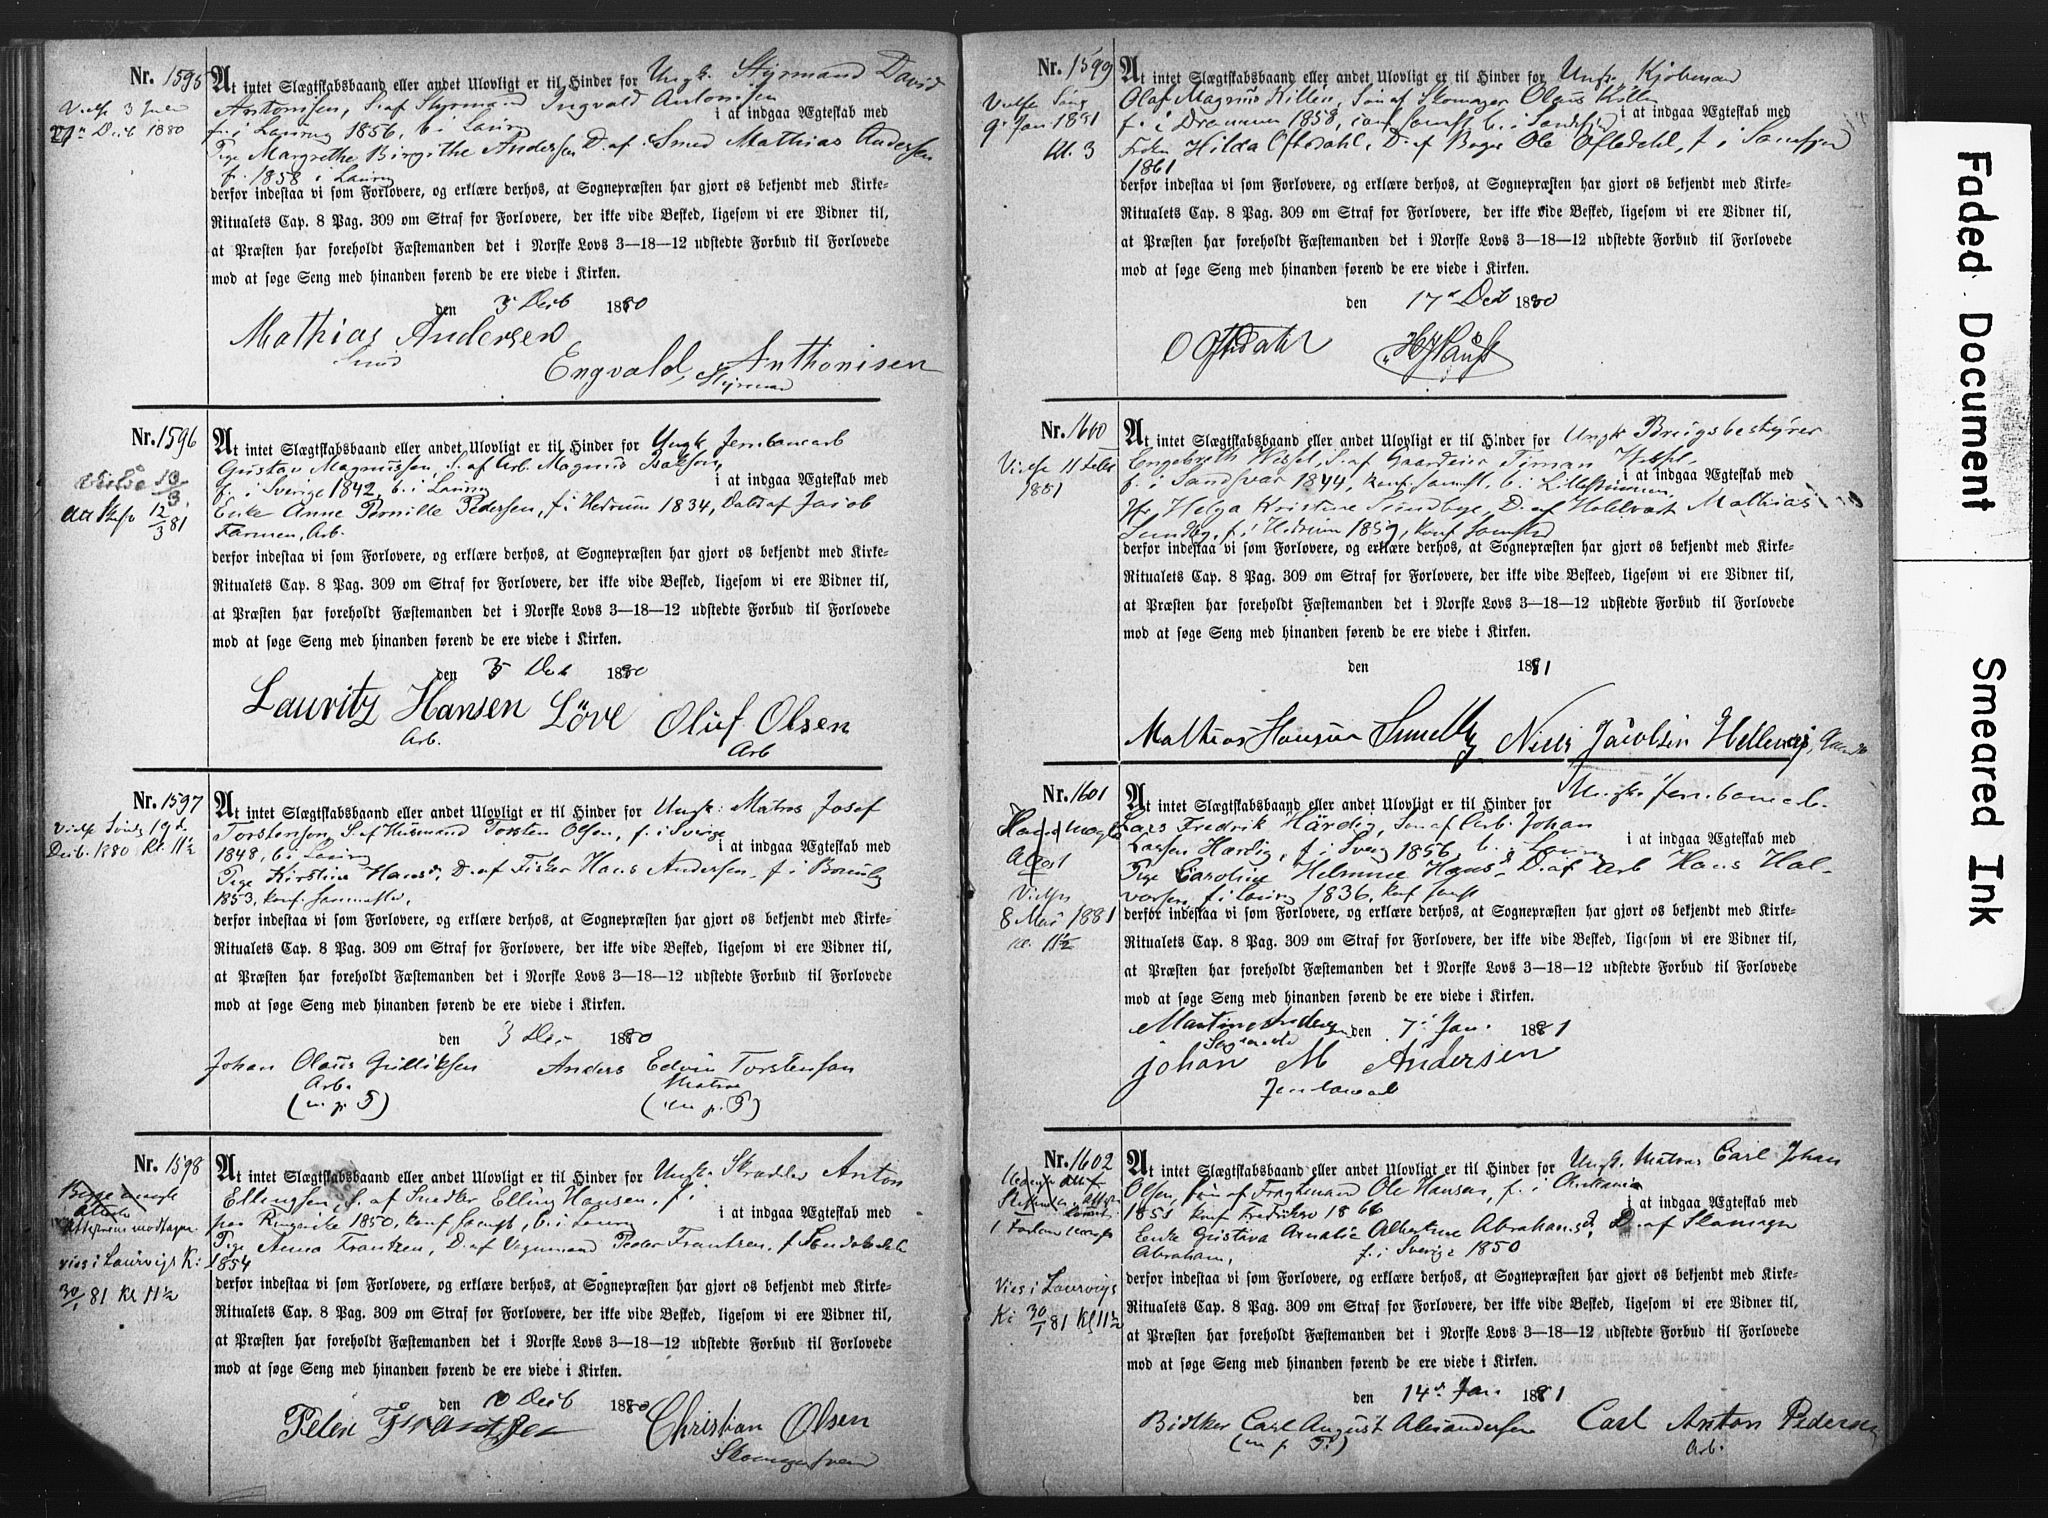 Nr. 1595
Vielse 3 Jule
Deib 1880
At intet Slægtskabsbaand eller andet Ulovligt er til Hinder for Ungk. Styrmand David
Antonisen, S. af Styrmand Ingvald Antonisen
i at indgaa Ægteskab med
f. i Laurvig 1856, b. i Laurvig
Pige Margrethe Birgithe Andersen D. af Smed Mathias Andersen
f. 1858 i Laurvig
derfor indestaa vi som Forlovere, og erklære derhos, at Sognepræsten har gjort os bekjendt med Kirke-
Ritualets Cap. 8 Pag. 309 om Straf for Forlovere, der ikke vide Besked, ligesom vi ere Vidner til,
at Præsten har foreholdt Fæstemanden det i Norske Lovs 3—18—12 udstedte Forbud til Forlovede
mod at søge Seng med hinanden førend de ere viede i Kirken.
den 3 Deib 1880
Mathias Andersen
Smed
Engvald Anthonisen
Styrmand
Nr. 1596
Vielse 13/3
12/3 81
At intet Slægtskabsbaand eller andet Ulovligt er til Hinder for Ungk Jernbanearb
Gustav Magnussen, S. af Arb. Magnus Isaksen,
i at indgaa Ægteskab med
f. i Sverige 1842, b. i Laurvig
Enke Anne Pernille Pedersen, f. i Hedrum 1834, Datt af Jacob
Farmen, Arb.
derfor indestaa vi som Forlovere, og erklære derhos, at Sognepræsten har gjort os bekjendt med Kirke-
Ritualets Cap. 8 Pag. 309 om Straf for Forlovere, der ikke vide Besked, ligesom vi ere Vidner til,
at Præsten har foreholdt Fæstemanden det i Norske Lovs 3—18—12 udstedte Forbud til Forlovede
mod at søge Seng med hinanden førend de ere viede i Kirken.
den 3 Deib 1880
Lauritz Hansen Löve Oluf Olsen
Arb. Arb
Nr. 1597
Vielse Sönd 19 d.
Deib. 1880 Kl. 11½
At intet Slægtskabsbaand eller andet Ulovligt er til Hinder for Ungk: Matros Josef
Torstenson, S. af Husmand Torsten Olsen, f. i Sverige
i at indgaa Ægteskab med
1848, b. i Laurvig
Pige Kirstine Hansd, D. af Fisker Hans Andersen, f. i Brunla
1853, konf. sammested.
derfor indestaa vi som Forlovere, og erklære derhos, at Sognepræsten har gjort os bekjendt med Kirke-
Ritualets Cap. 8 Pag. 309 om Straf for Forlovere, der ikke vide Besked, ligesom vi ere Vidner til,
at Præsten har foreholdt Fæstemanden det i Norske Lovs 3—18—12 udstedte Forbud til Forlovede
mod at søge Seng med hinanden førend de ere viede i Kirken.
den 3 De 1880
Johan Olaus Gulliksen Anders Edvin Torstensen
Arb. Matros
(m. p. P) (m p. P)
Nr. 1598
Attesterne modtagen
vies i Laurvigs K:
30/1 81 Kl 11½
At intet Slægtskabsbaand eller andet Ulovligt er til Hinder for Ungk. Skrædder Anton
Ellingsen, S. af Snedker Elling Hansen, f. i
i at indgaa Ægteskab med
paa Ringerike 1850, konf. samst, b. i Laurvig
Pige Anna Frantzen, D. af Vognmand Peder Frantzen, f.
1854
derfor indestaa vi som Forlovere, og erklære derhos, at Sognepræsten har gjort os bekjendt med Kirke-
Ritualets Cap. 8 Pag. 309 om Straf for Forlovere, der ikke vide Besked, ligesom vi ere Vidner til,
at Præsten har foreholdt Fæstemanden det i Norske Lovs 3—18—12 udstedte Forbud til Forlovede
mod at søge Seng med hinanden førend de ere viede i Kirken.
den 10 Deib 1880
Peter Frantzen Christian Olsen
Skomagersvend
Nr. 1599
Vielse Sönd
9. Jan 1881
Kl. 3
At intet Slægtskabsbaand eller andet Ulovligt er til Hinder for Ungk. Kjöbmand
Olaf Magnus Killén, Sön af Skomager Olaus Killén
i at indgaa Ægteskab med
f. i Drammen 1858, konf samst b. i Sandefjord
Fröken Hilda Oftedahl, D. af Bager Ole Oftedahl, f. i
1861
derfor indestaa vi som Forlovere, og erklære derhos, at Sognepræsten har gjort os bekjendt med Kirke-
Ritualets Cap. 8 Pag. 309 om Straf for Forlovere, der ikke vide Besked, ligesom vi ere Vidner til,
at Præsten har foreholdt Fæstemanden det i Norske Lovs 3—18—12 udstedte Forbud til Forlovede
mod at søge Seng med hinanden førend de ere viede i Kirken.
den 17d Deib 1880
O Oftedahl
Nr. 1600
Vielse 11 Febr
1881
At intet Slægtskabsbaand eller andet Ulovligt er til Hinder for Ungk Brugsbestyrer
Engebreth Hessel, S. af Gaardeier Timan Hessel,
i at indgaa Ægteskab med
f. i Sandsvær 1844, konf. samst, b. i Lilleströmmen,
Jfr. Helga Kristine Sundbye, D. af Holtvogt Mathias
Sundby, f. i Hedrum 1859, konf samsted
derfor indestaa vi som Forlovere, og erklære derhos, at Sognepræsten har gjort os bekjendt med Kirke-
Ritualets Cap. 8 Pag. 309 om Straf for Forlovere, der ikke vide Beskeed, ligesom vi ere Vidner til,
at Præsten har foreholdt Fæstemanden det i Norske Lovs 3—18—12 udstedte Forbud til Forlovede
mod at søge Seng med hinanden førend de ere viede i Kirken.
den 1881
Mathias Hansen Sundby Niels Jacobsen
Nr. 1601
Vielse
8 Mai 1881
Kl. 11½
At intet Slægtskabsbaand eller andet Ulovligt er til Hinder for Ungk. Jernbanearb.
Lars Fredrik Härdig, Sön af Arb. Johan
i at indgaa Ægteskab med
Larsen Härdig, f. i Sverig 1856, b. i Laurvig
Pige Caroline Helmine Hansd. D. af Arb Hans Hal-
vorsen, f. i Laurvig 1836, konf samst
derfor indestaa vi som Forlovere, og erklære derhos, at Sognepræsten har gjort os bekjendt med Kirke-
Ritualets Cap. 8 Pag. 309 om Straf for Forlovere, der ikke vide Besked, ligesom vi ere Vidner til,
at Præsten har foreholdt Fæstemanden det i Norske Lovs 3—18—12 udstedte Forbud til Forlovede
mod at søge Seng med hinanden førend de ere viede i Kirken.
den 7d Jan. 1881
Johan M Andersen
Nr. 1602
Vies i Laurvigs
K: 30/1 81 Kl 11½
At intet Slægtskabsbaand eller andet Ulovligt er til Hinder for Ungk. Matros Carl Johan
Olsen, Sön af Fragtemand Ole Hansen, f. i Christiania
i at indgaa Ægteskab med
1851 konf Fredriksv 1866
Enke Gustava Amalia Albertine Abrahamsd, D. af Skomager
Abraham, f. i Sverige 1850
derfor indestaa vi som Forlovere, og erklære derhos, at Sognepræsten har gjort os bekjendt med Kirke-
Ritualets Cap. 8 Pag. 309 om Straf for Forlovere, der ikke vide Besked, ligesom vi ere Vidner til,
at Præsten har foreholdt Fæstemanden det i Norske Lovs 3—18—12 udstedte Forbud til Forlovede
mod at søge Seng med hinanden førend de ere viede i Kirken.
den 14d Jan 1881
Carl August Alexandersen Carl Anton Pedersen
(m p. P.) Arb.
Faded Document
Smeared Ink